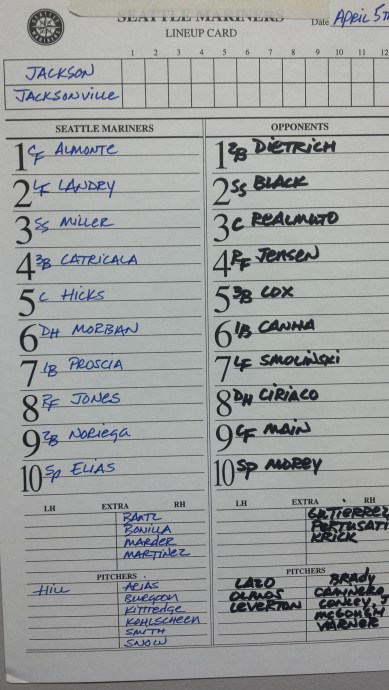 SEATTLE MARINERS
LINEUP CARD
Date April 5th
1 2 3 4 5 6 7 8 9 10 11 12
JACKSON
JACKSONVILLE
SEATTLE MARINERS
1 CF ALMONTE
2 LF LANDRY
3 SS MILLER
4 3B CATRICALA
5 C HICKS
6 DH MORBAN
7 1B PROSCIA
8 RF JONES
9 2B NORIEGA
10 SP ELIAS
LH EXTRA RH
BANTZ
BONILLA
MARDER
MARTINEZ
PITCHERS
HILL ARIAS
BURGOON
KITTREDGE
KOHLSCHEEN
SMITH
SNOW
OPPONENTS
1 2B DIETRICH
2 SS BLACK
3 C REALMUTO
4 RF JENSEN
5 3B COX
6 1B CANHA
7 LF SMOLINSKI
8 DH CIRIACO
9 CF MAIN
10 SP MOREY
LH EXTRA RH
GUTIERREZ
PERTUSATI
KRICK
PITCHERS
LAZO BRADY
OLMOS CAMINERO
LEVERTON CONLEY
VARNER